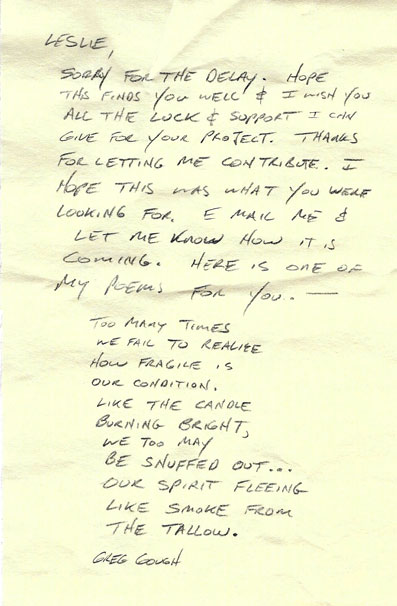 LESLIE,
SORRY FOR THE DELAY. HOPE
THIS FINDS YOU WELL & I WISH YOU
ALL THE LUCK & SUPPORT I CAN
GIVE FOR YOUR PROJECT. THANKS
FOR LETTING ME CONTRIBUTE. I
HOPE THIS WAS WHAT YOU WERE
LOOKING FOR. E MAIL ME &
LET ME KNOW HOW IT IS
COMING. HERE IS ONE OF
MY POEMS FOR YOU. —
TOO MANY TIMES
WE FAIL TO REALIZE
HOW FRAGILE IS
OUR CONDITION.
LIKE THE CANDLE
BURNING BRIGHT,
WE TOO MAY
BE SNUFFED OUT...
OUR SPIRIT FLEEING
LIKE SMOKE FROM
THE TALLOW.
GREG GOUGH